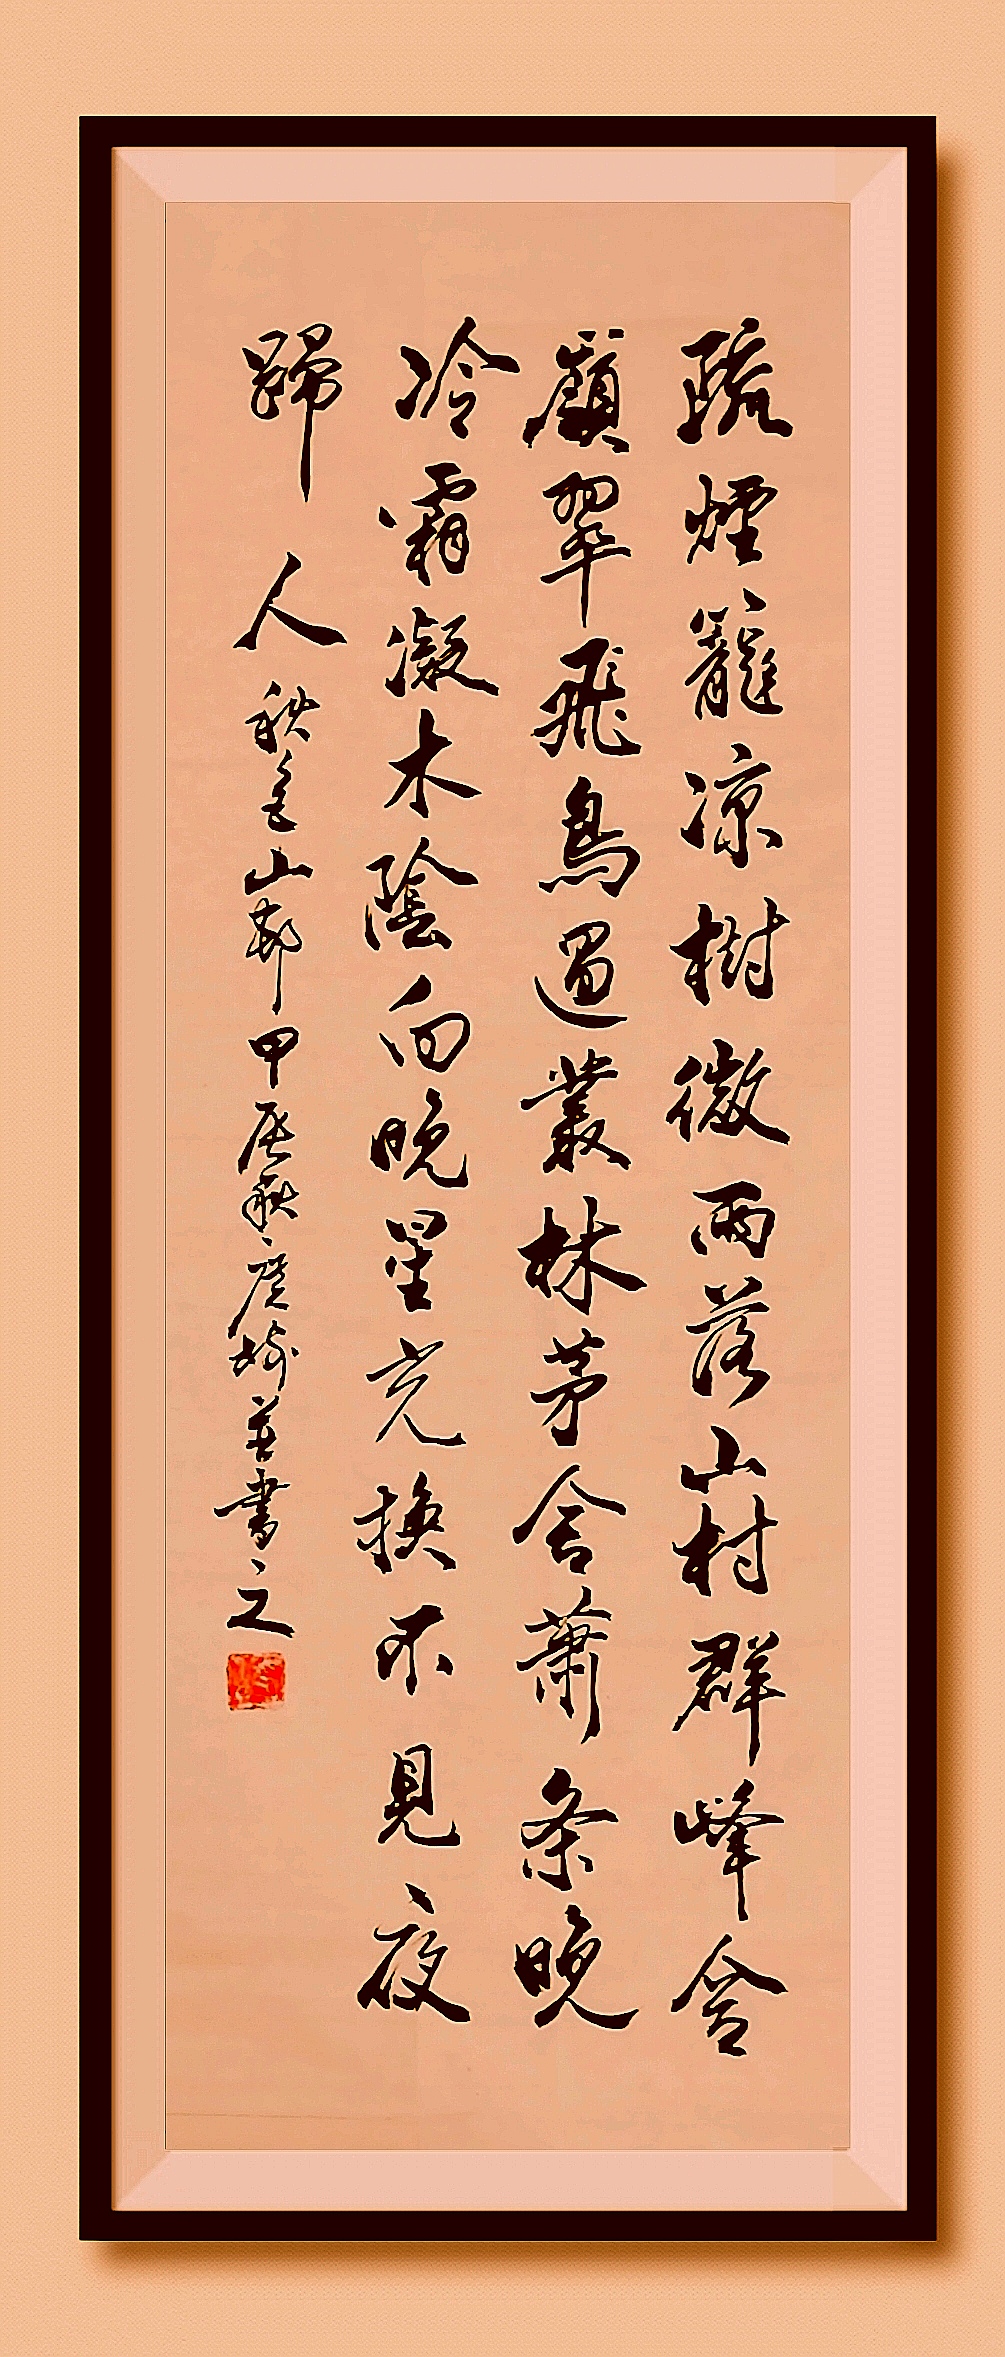 疏煙籠凉樹微雨落山村群峰含
嶺翠飛鳥過叢林茅舍蕭条晚
冷霜凝木陰向晚星光換不見夜
歸人秋色山邨甲辰秋廣 并書之